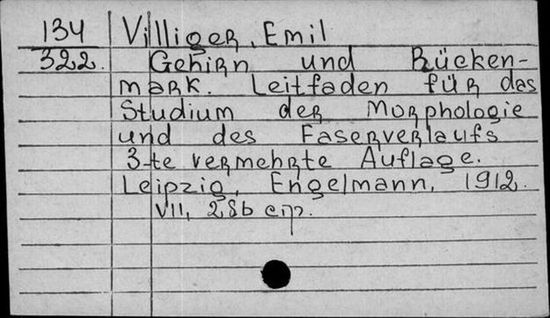 134 Villiger, Emil
322. Gehirn und Rücken-
mark. Leitfaden für das
Studium der Morphologie
und des Faserverlaufs
3-te vermehrte Auflage.
Leipzig, Engelmann, 1912.
VII, 286 стр.